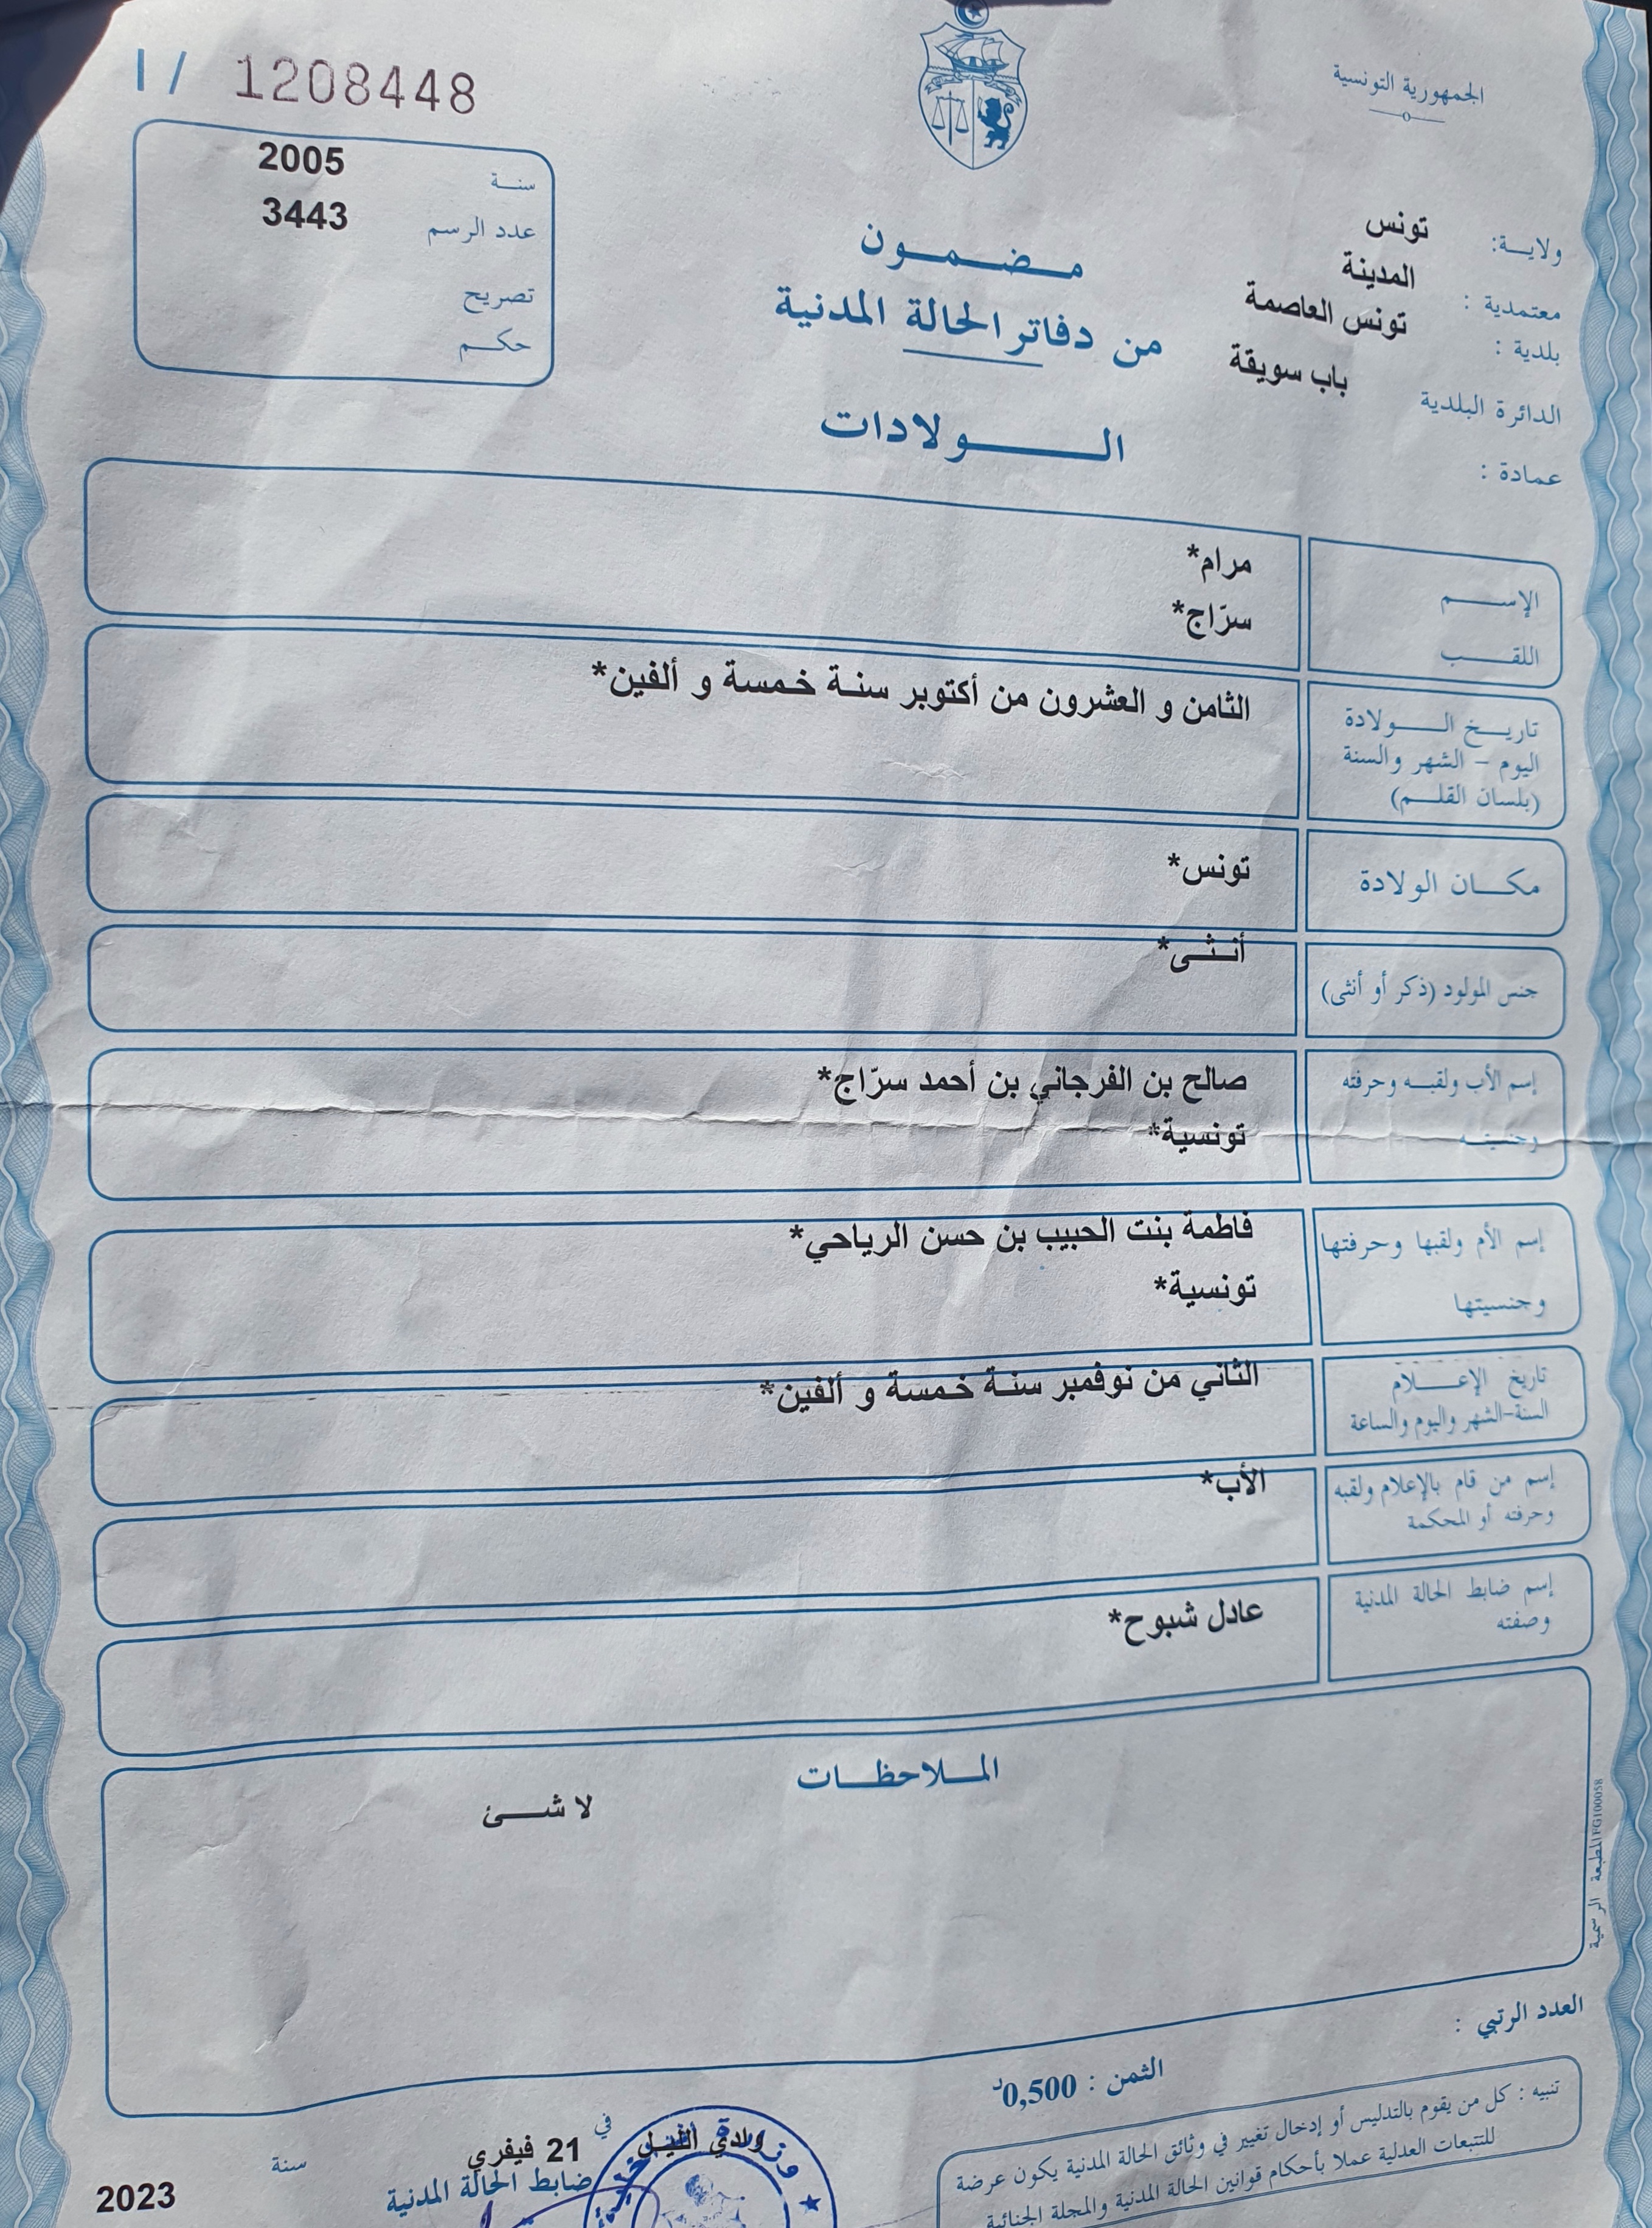 الجمهورية التونسية
I / 1208448
سنة 2005
عدد الرسم 3443
تصريح
حكم
ولاية: تونس
معتمدية : المدينة
بلدية : تونس العاصمة
الدائرة البلدية باب سويقة
عمادة :
مضمون
من دفاتر الحالة المدنية
الولادات
الإسم مرام*
اللقب سرّاج*
تاريخ الولادة
اليوم - الشهر والسنة
(بلسان القلم)
الثامن و العشرون من أكتوبر سنة خمسة و ألفين*
مكان الولادة تونس*
جنس المولود (ذكر أو أنثى) أنثى*
إسم الأب ولقبه وحرفته
وجنسيته
صالح بن الفرجاني بن أحمد سرّاج*
تونسية*
إسم الأم ولقبها وحرفتها
وجنسيتها
فاطمة بنت الحبيب بن حسن الرياحي*
تونسية*
تاريخ الإعلام
السنة-الشهر واليوم والساعة
الثاني من نوفمبر سنة خمسة و ألفين*
إسم من قام بالإعلام ولقبه
وحرفته أو المحكمة
الأب*
إسم ضابط الحالة المدنية
وصفته
عادل شبوح*
الملاحظات
لا شئ
المطبعة الرسمية FG100058
العدد الرتبي :
الثمن : 0,500د
تنبيه : كل من يقوم بالتدليس أو إدخال تغيير في وثائق الحالة المدنية يكون عرضة
للتتبعات العدلية عملا بأحكام قوانين الحالة المدنية والمجلة الجنائية
وادي الليل في 21 فيفري سنة 2023
ضابط الحالة المدنية